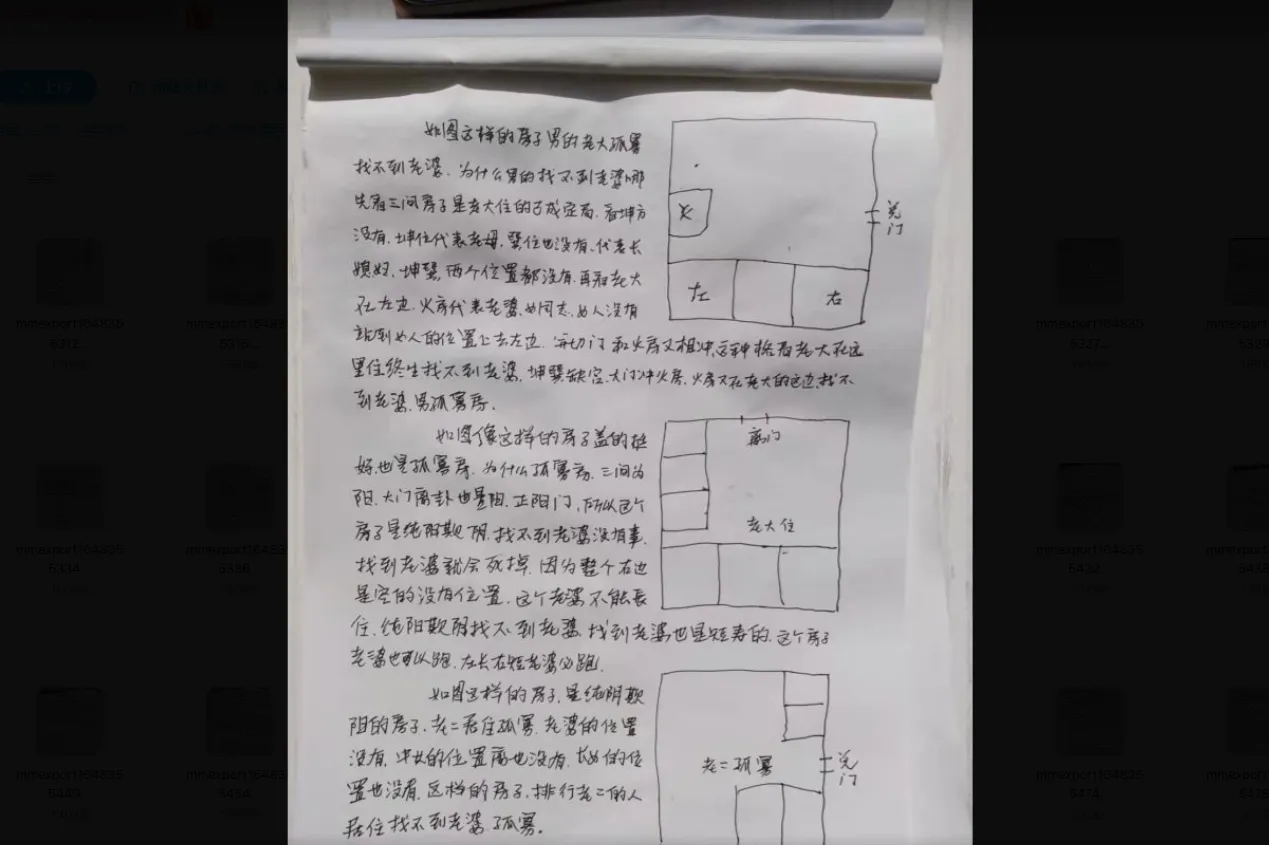 如图这样的房子男的老大孤寡
找不到老婆. 为什么男的找不到老婆哪
先看三间房子是老大住的已成定局. 看坤方
没有. 坤位代表老母. 巽位也没有. 代表长
媳妇. 坤巽. 两个位置都没有. 再看老大
在左边. 火房代表老婆. 女同志. 女人没有
站到女人的位置上去左边. 切门和火房又相冲. 这种格局老大在这
里住终生找不到老婆. 坤巽缺宫. 大门冲火房. 火房又在老大的这边. 找不
到老婆. 男孤寡房.
火
兑
门
左
右
如图像这样的房子盖的挺
好. 也是孤寡房. 为什么孤寡房. 三间为
阳. 大门离卦也是阳. 正阳门. 所以这个
房子是纯阳欺阴. 找不到老婆没有事.
找到老婆就会死掉. 因为整个右边
是空的没有位置. 这个老婆不能长
住. 纯阳欺阴找不到老婆. 找到老婆也是短寿的. 这个房子
老婆也可以跑. 左长右短老婆必跑.
离门
老大住
如图这样的房子. 是纯阴欺
阳的房子. 老二居住孤寡. 老婆的位置
没有. 中女的位置离也没有. 长女的位
置也没有. 这样的房子. 排行老二的人
居住找不到老婆. 孤寡.
老二孤寡
兑
门
mmexport164835
mmexport164835
mmexport164835
mmexport164835
mmexport164835
mmexport164835
mmexport164835
mmexport164835
mmexport164835